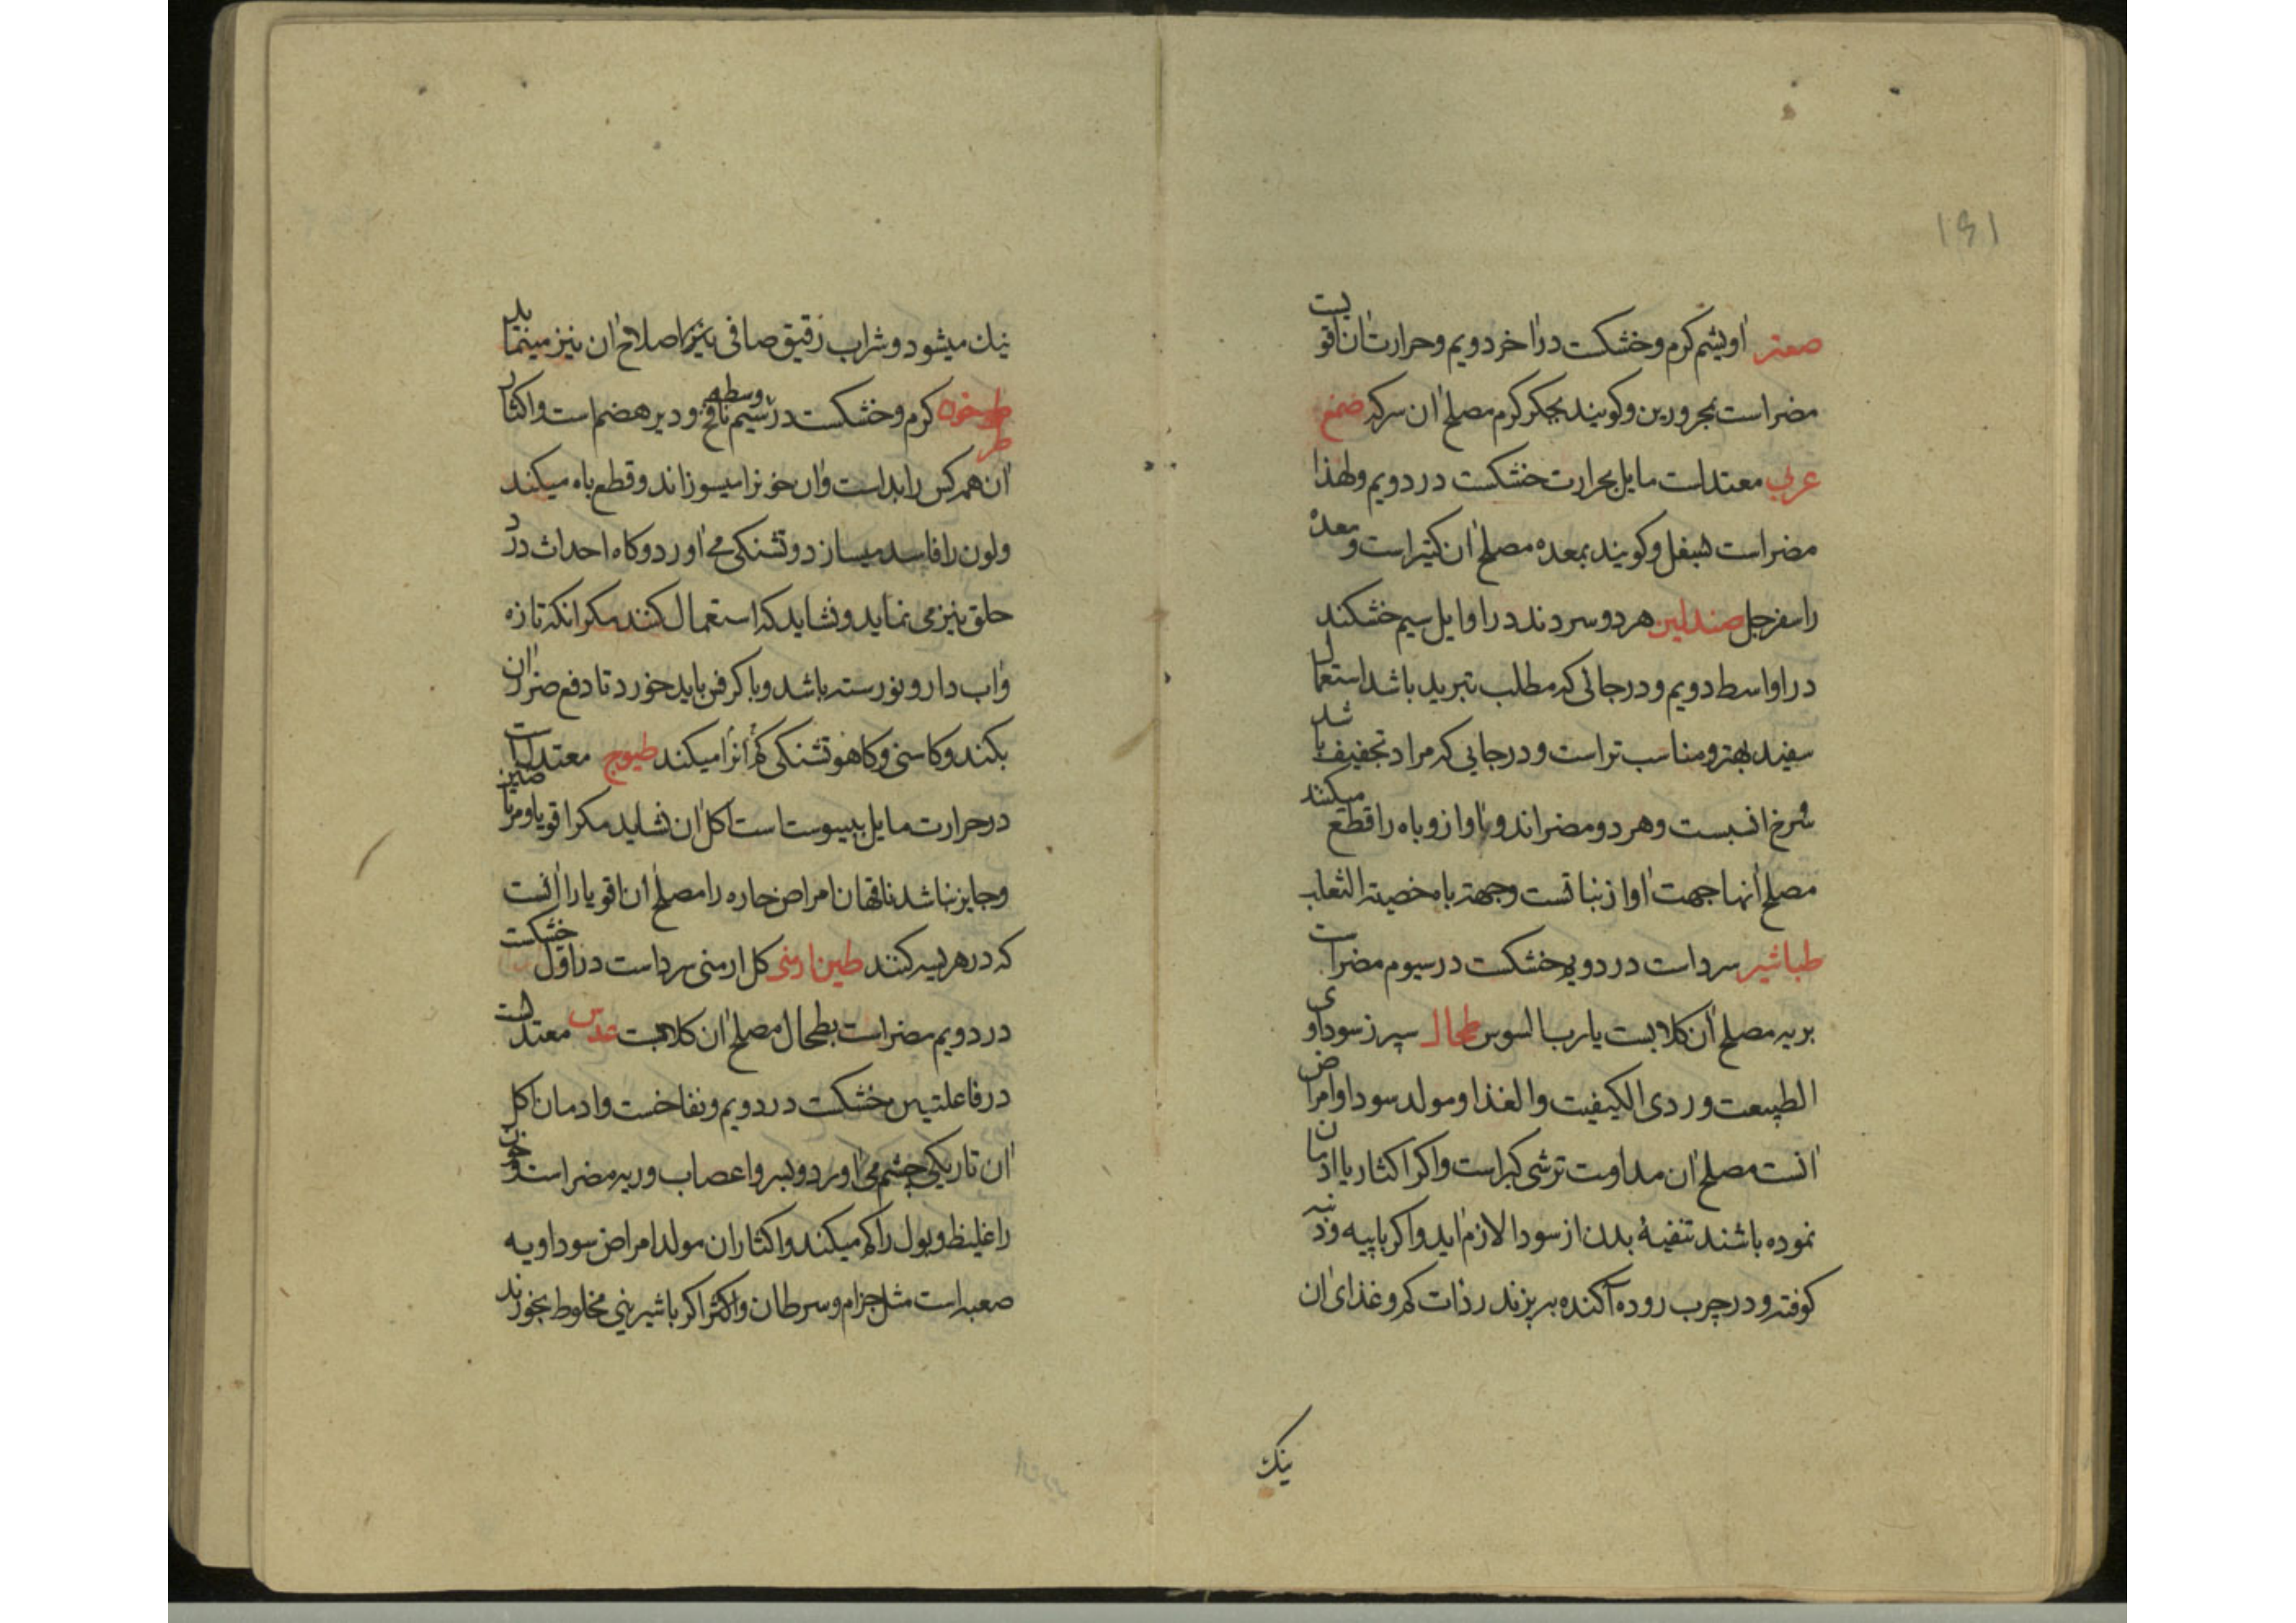 ۱۶۱
صعتر اویشم کرم و خشکست در اخر دویم و حرارت ان قویست
مضر است بمحرورین و کویند بجکر کرم مصلح ان سرکه صمغ
عربی معتدلست مایل بحرارت خشکست در دویم و لهذا
مضر است بسفل و کویند بمعده مصلح ان کتیراست و معده
را سفرجل صندلین هر دو سردند در اوایل سیم خشکند
در اواسط دویم و در جائی که مطلب تبرید باشد استعمال
سفید بهتر و مناسب تر است و در جایی که مراد تجفیف باشد
سرخ انسبست و هر دو مضراند و باواز و باه را قطع میکنند
مصلح آنها جهت اواز نباتست و جهة باه خصیة الثعلب
طباشیر سرد است در دویم خشکست در سیوم مضر است
بریه مصلح ان کلابست یا رب السوس طحال سپرز سوداوی
الطبیعت و ردی الکیفیت و الغذا و مولد سودا و امراض
انست مصلح ان مداومت ترشی کبر است و اکر اکثار یا ادمان
نموده باشند تنقیهٔ بدن از سودا لازم اید و اکر با پیه و دنبه
کوفته و در چرب روده آکنده بریزند رذات کم و غذای ان
نیك
نیك میشود و شراب رقیق صافی نیز اصلاح ان نیز مینماید
طرخون کرم و خشکست در وسط سیم نافخ و دیر هضم است و اکثار
ان همه کس را بد است و ان خونرا میسوزاند و قطع باه میکند
و لون را فاسد میسازد و تشنکی می اورد و کاه احداث درد
حلق نیز می نماید و نشاید که استعمال کنند مکر انکه تازه
و اب دار و نو رسته باشد و با کرفس باید خورد تا دفع ضرر ان
بکند و کاسنی و کاهو تشنکی که انرا میکند طیهوج معتدلست
در حرارت مایل بیبوست است اکل ان نشاید مکر اقویا و مرتاضین
و جایز نباشد ناقهان امراض حاره را مصلح ان اقویا را انست
که در هریسه کنند طین ارمنی کل ارمنی سرد است در اول خشکست
در دویم مضر است بطحال مصلح ان کلابست عدس معتدلست
در فاعلتین خشکست در دویم و نفاخست و ادمان اکل
ان تاریکی چشم می اورد و بسر و اعصاب و ریه مضر است و خون
را غلیظ و بول را کم میکند و اکثار ان مولد امراض سوداویه
صعبه است مثل جزام و سرطان و اکثر اکر با شیرینی مخلوط بخورند